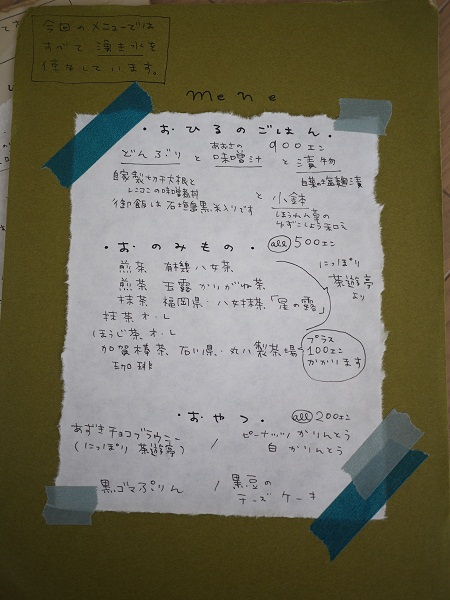 今回のメニューでは
すべて湧き水を
使用しています。
mene
・おひるのごはん・
900エン
どんぶり と あおさの味噌汁 と 漬物
自家製切干大根と
レンコンの味噌
白菜の塩麹漬
御飯は石垣島黒米入りです
と 小鉢
ほうれん草の
ゆずこしょう和え
・おのみもの・ all 500エン
煎茶 有機八女茶
にっぽり
茶遊亭
より
煎茶 玉露かりがね茶
抹茶 福岡県・八女抹茶「星の露」
抹茶オ・レ
ほうじ茶オ・レ
加賀棒茶 石川県・丸八製茶場
珈琲
プラス
100エン
かかります
・おやつ・ all 200エン
あずきチョコブラウニー
(にっぽり 茶遊亭)
/
ピーナッツかりんとう
白かりんとう
黒ゴマぷりん
/
黒豆の
チーズケーキ